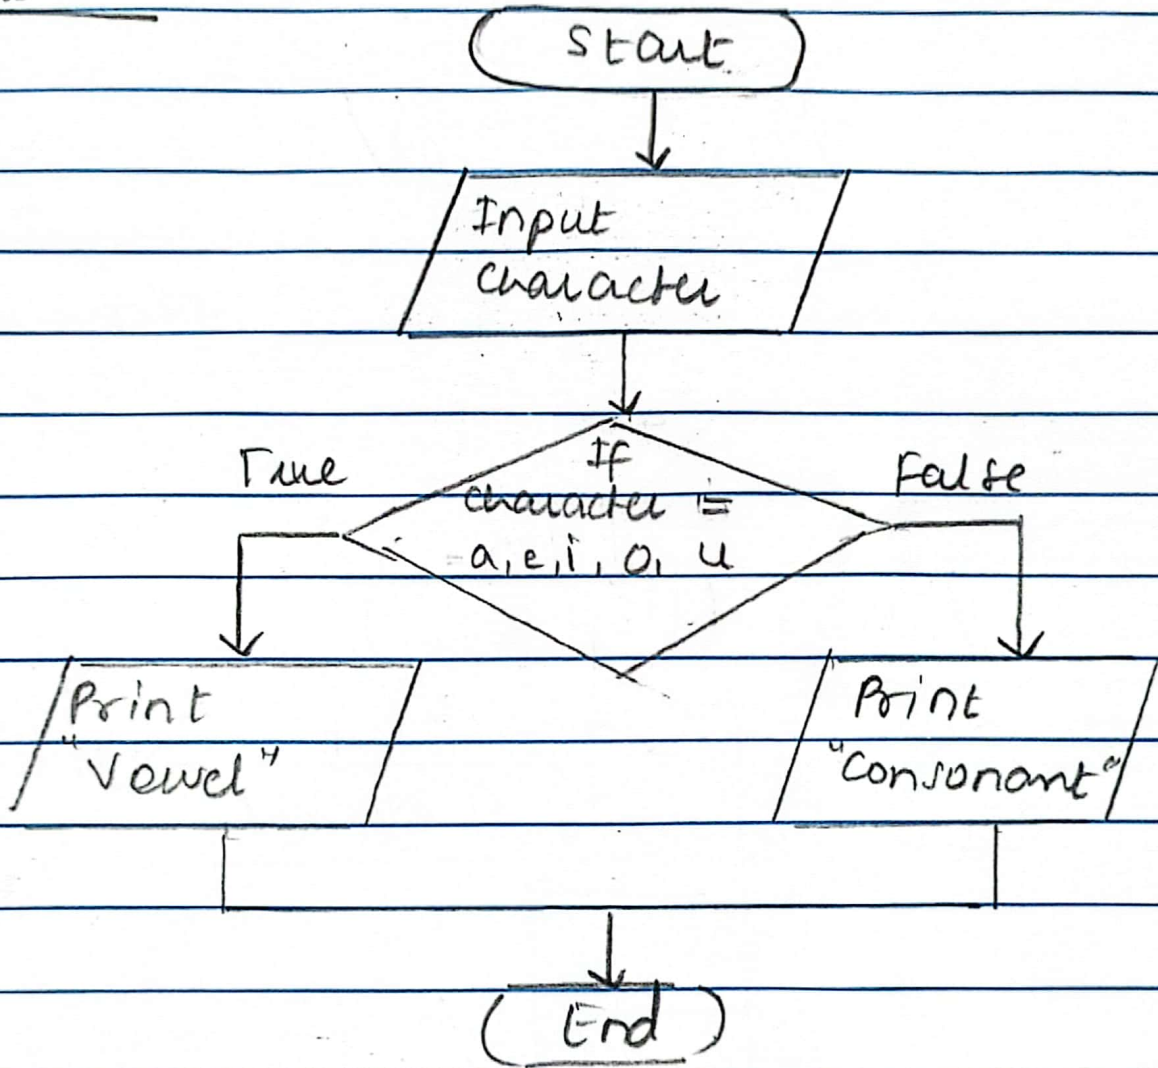 Start
Input
character
If
True
False
character =
a, e, i, o, u
Print
"Vowel"
Print
"Consonant"
End